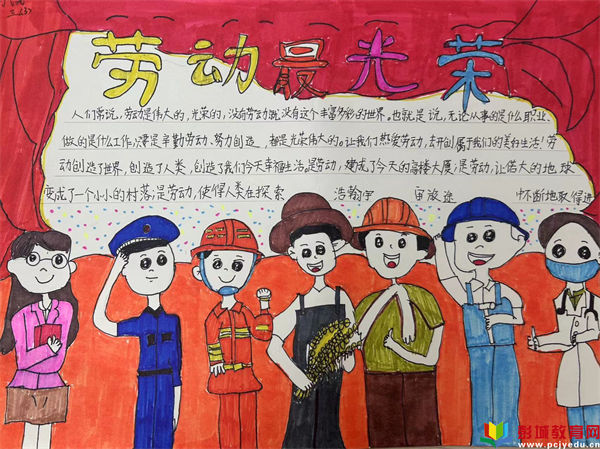 三(3)
劳动最光荣
人们常说,劳动是伟大的,光荣的,没有劳动就没有这个丰富多彩的世界。也就是说,无论从事的是什么职业,
做的是什么工作,凡是辛勤劳动、努力创造,都是光荣伟大的。让我们热爱劳动,去开创属于我们的美好生活!劳
动创造了世界,创造了人类,创造了我们今天幸福生活。是劳动,建成了今天的高楼大厦;是劳动,让偌大的地球
变成了一个小小的村落;是劳动,使得人类在探索 浩瀚宇宙 中不断地取得进
彭城教育网
www.pcjyedu.cn